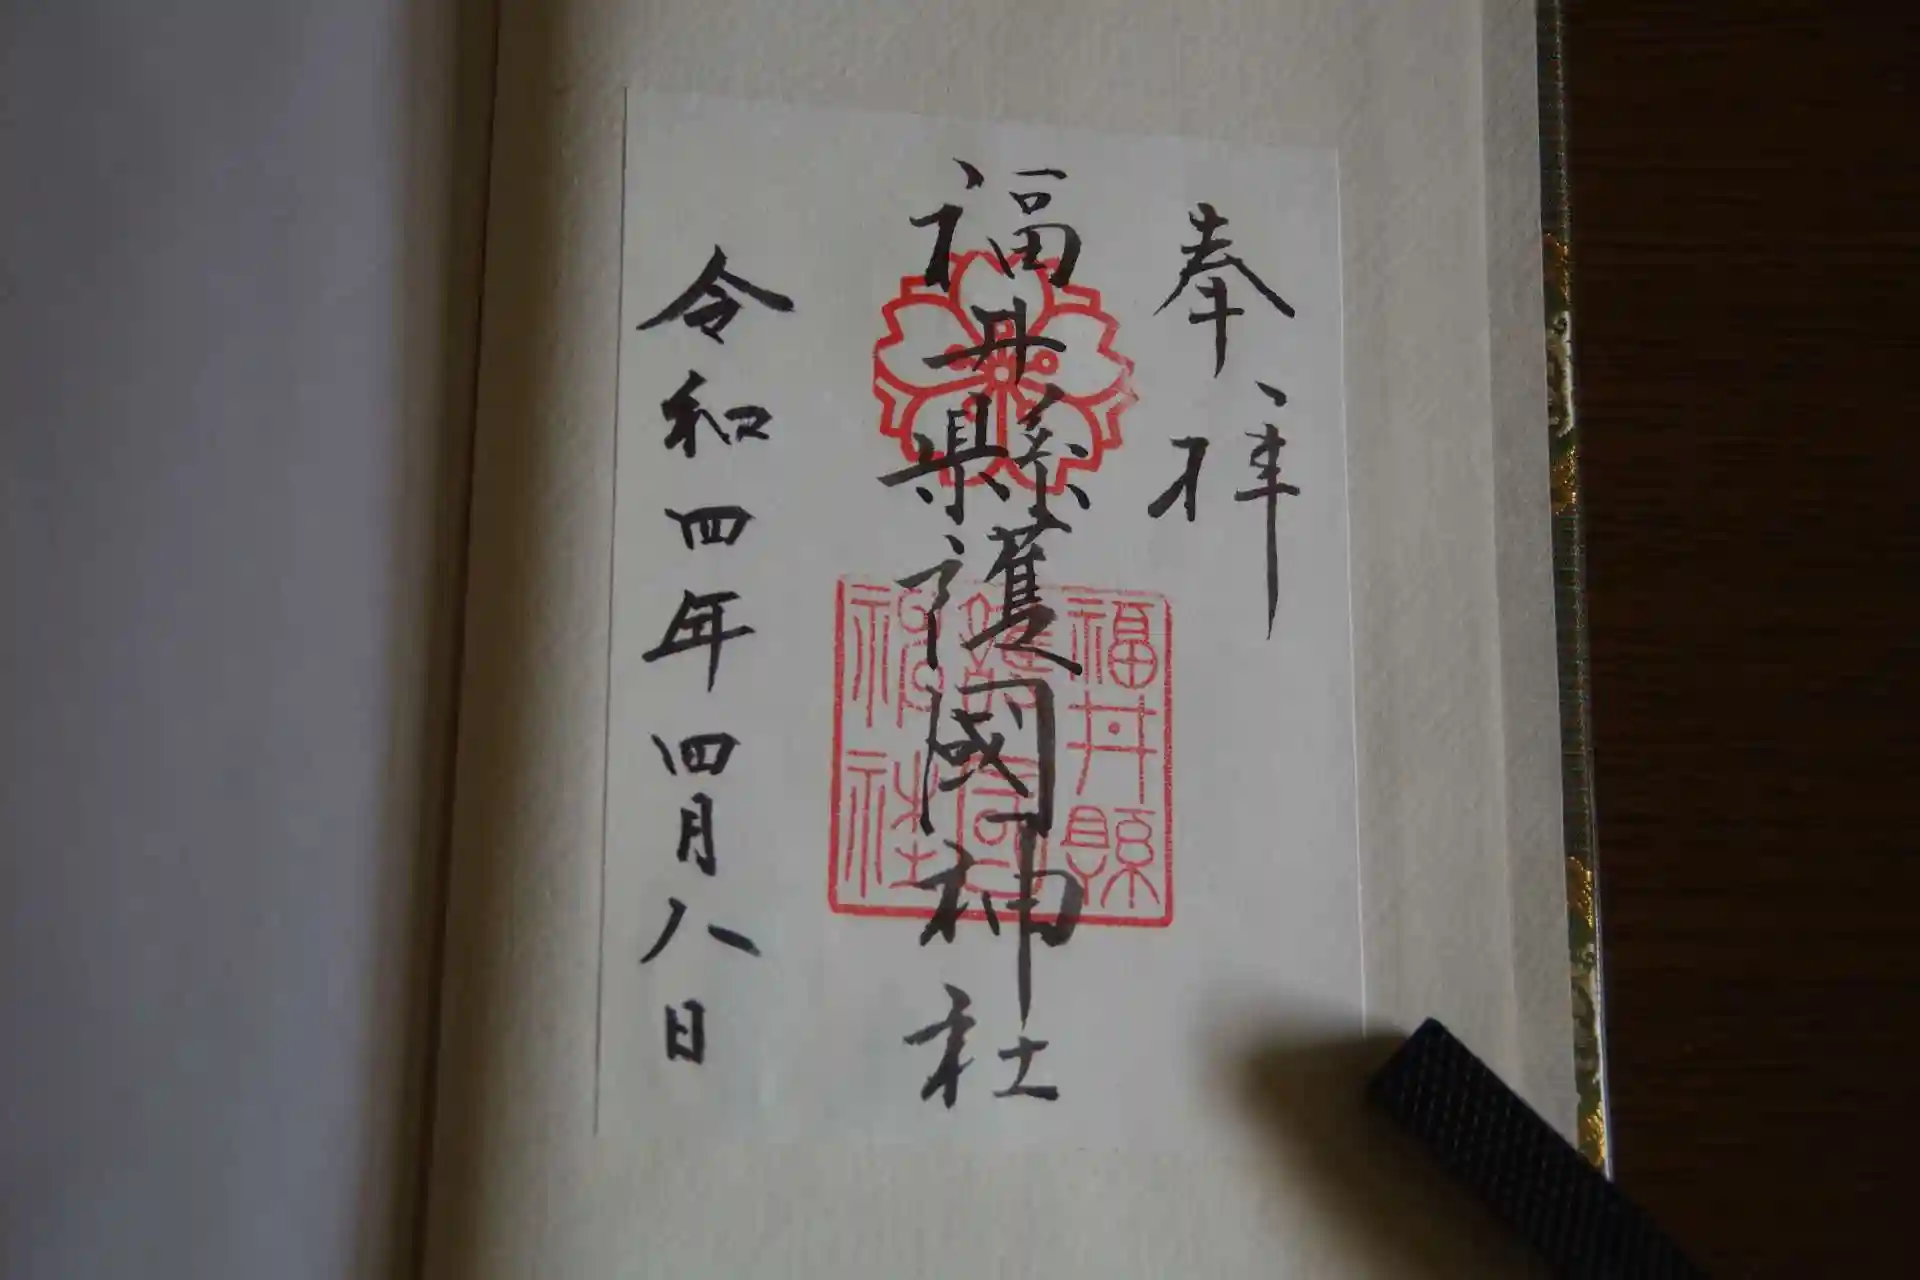 奉拝
福井縣護國神社
令和四年四月八日
福井縣
護國
神社